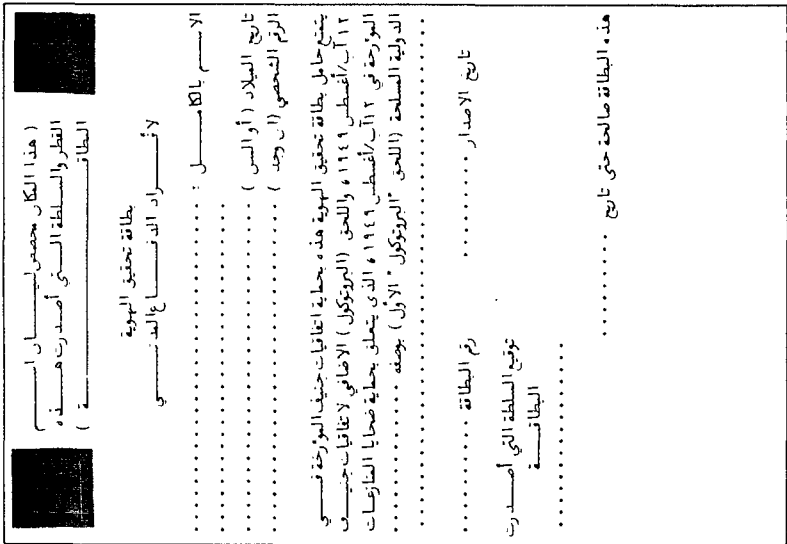 ( هذا المكان مخصص لبيان اسم
القطر والسلطة التي أصدرت هذه
البطاقة )
بطاقة تحقيق الهوية
لأفراد الدفاع المدني
الاسم بالكامل : ..............................
..............................
تاريخ الميلاد ( أو السن ) ..............................
الرقم الشخصي (ان وجد ) ..............................
يتمتع حامل بطاقة تحقيق الهوية هذه بحماية اتفاقيات جنيف المؤرخة في
١٢ آب/أغسطس ١٩٤٩ ، واللحق (البروتوكول) الاضافي لاتفاقيات جنيف
المؤرخة في ١٢ آب/أغسطس ١٩٤٩ ، الذى يتعلق بحماية ضحايا المنازعات
الدولية المسلحة (اللحق "البروتوكول" الأول) بوصفه ..............
..............................
تاريخ الاصدار .......... رقم البطاقة ..........
توقيع السلطة التي أصدرت
البطاقة
..............................
هذه البطاقة صالحة حتى تاريخ ..........